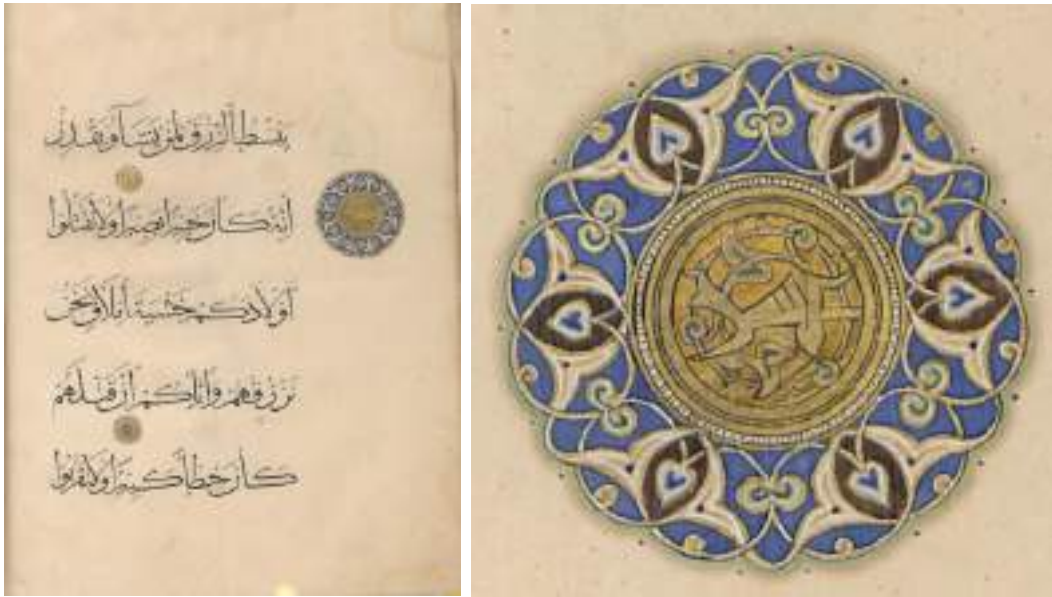 يبسط الرزق لمن يشآ ويقدر
انه كان خبيرا بصيرا ولا تقتلوا
اولادكم خشية املاق نحن
نرزقهم واياكم ان قتلهم
كان خطا كبيرا ولا تقربوا